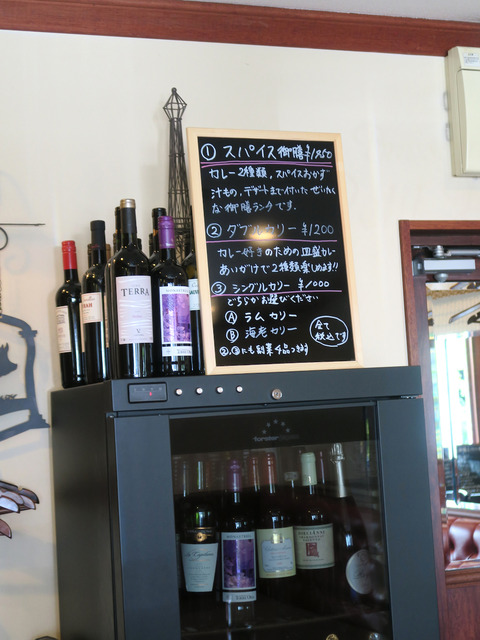 ① スパイス御膳
カレー2種類、スパイスおかず
汁もの、デザートまで付いたぜいたく
な御膳ランチです。
② ダブルカリー ¥1200
カレー好きのための皿盛カレー
あいがけで2種類楽しめます!!
③ シングルカリー ¥1000
どちらかお選びください
Ⓐ ラムカリー
Ⓑ 海老カリー
全て
税込です
②,③にも副菜4品つきます
TERRA